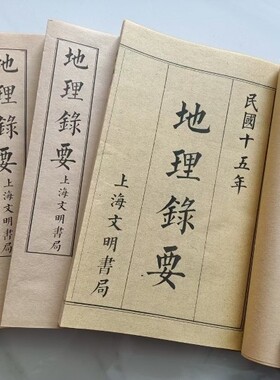 民國十五年
地理錄要
上海文明書局
地理錄要
上海文明書局
地理錄要
上海文明書局